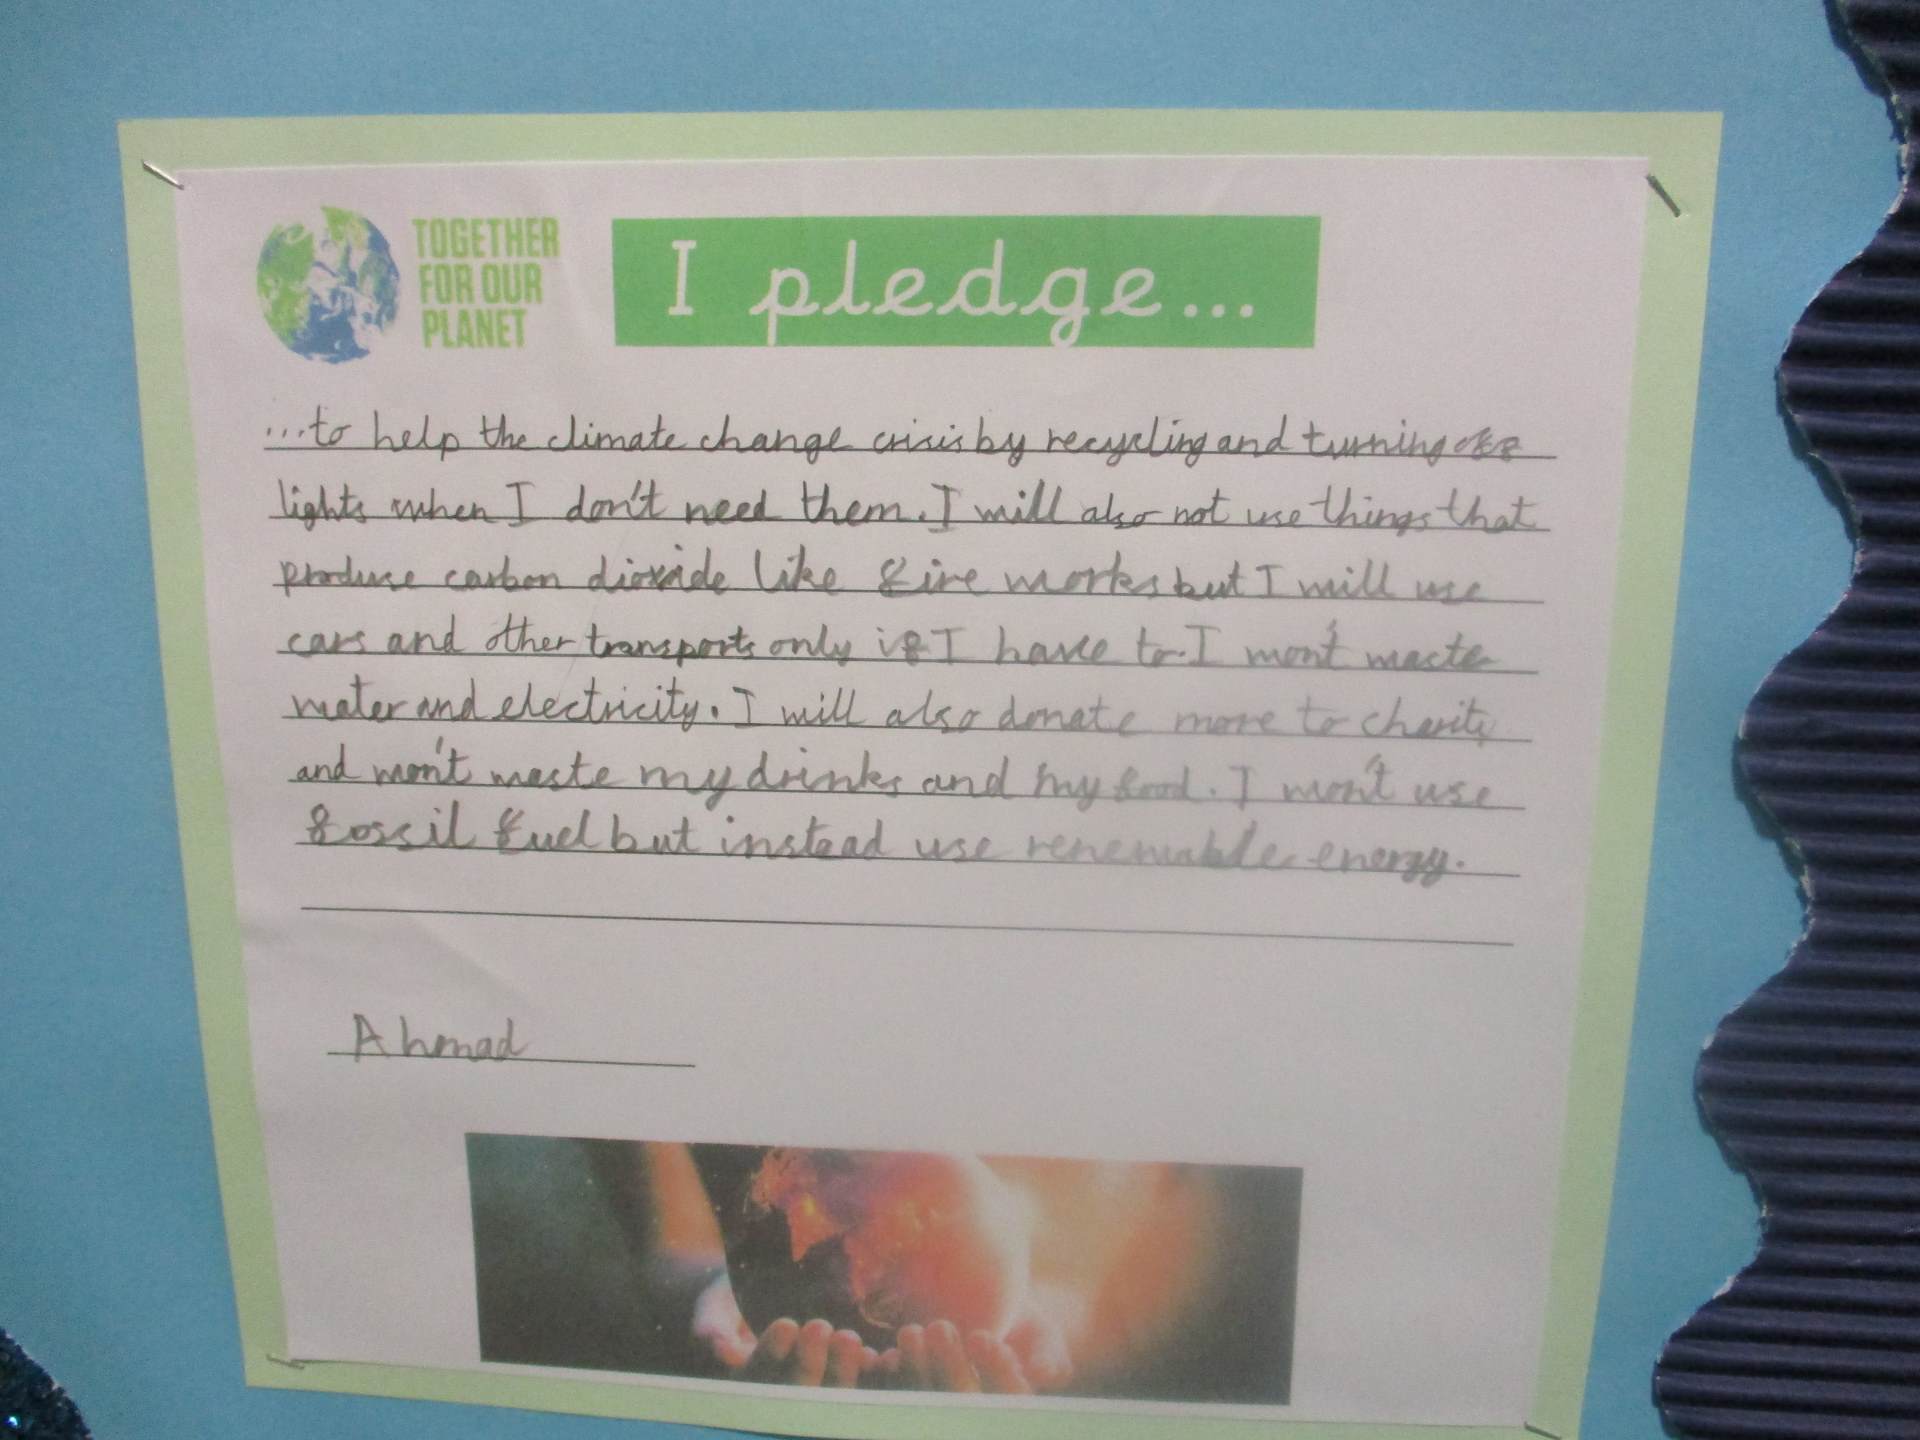 TOGETHER
FOR OUR
PLANET
I pledge...
...to help the climate change crisis by recycling and turning off
lights when I don't need them. I will also not use things that
produce carbon dioxide like fire works but I will use
cars and other transports only if I have to. I won't waste
water and electricity. I will also donate more to charity
and won't waste my drinks and my food. I won't use
fossil fuel but instead use renewable energy.
Ahmad